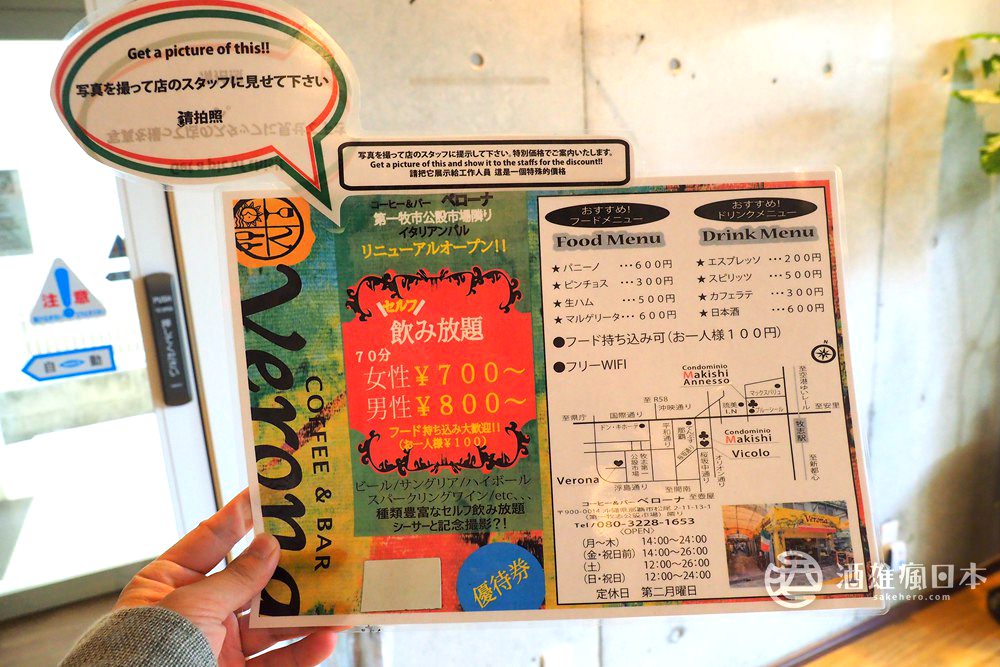 Get a picture of this!!
写真を撮って店のスタッフに見せて下さい
請拍照
写真を撮って店のスタッフに提示して下さい。特別価格でご案内いたします。
Get a picture of this and show it to the staffs for the discount!!
請把它展示給工作人員 這是一個特殊的價格
Verona
COFFEE & BAR
コーヒー&バー ベローナ
第一牧市公設市場隣り
イタリアンバル
リニューアルオープン!!
セルフ
飲み放題
70分
女性¥700~
男性¥800~
フード持ち込み大歓迎!!
(お一人様¥100)
ビール/サングリア/ハイボール
スパークリングワイン/etc、、、
種類豊富なセルフ飲み放題
シーサーと記念撮影?!
優待券
おすすめ!
フードメニュー
Food Menu
★パニーノ ・・・600円
★ピンチョス ・・・300円
★生ハム ・・・500円
★マルゲリータ・・・600円
おすすめ!
ドリンクメニュー
Drink Menu
★エスプレッソ ・・・200円
★スピリッツ ・・・500円
★カフェラテ ・・・300円
★日本酒 ・・・600円
●フード持ち込み可(お一人様100円)
●フリーWIFI
Condominio
Makishi
Annesso
マックスバリュ
至空港ゆいレール
至R58
琉美
I.N
ブルーシール
至安里
至県庁
国際通り
沖映通り
ドン・キホーテ
平和通り
牧志駅
Condominio
Makishi
Vicolo
牧志第一
公設市場
桜坂中通り
オリオン通り
Verona
浮島通り
至開南
至壺屋
至新都心
コーヒー&バー ベローナ
〒900-0014 沖縄県那覇市松尾 2-11-13-1
(第一牧志公設市場) 隣り
Tel/080-3228-1653
〈OPEN〉
(月~木) 14:00~24:00
(金・祝日前) 14:00~26:00
(土) 12:00~26:00
(日・祝日) 12:00~24:00
定休日 第二月曜日
Verona
注意
自動
PUSH
酒雄瘋日本
sakehero.com